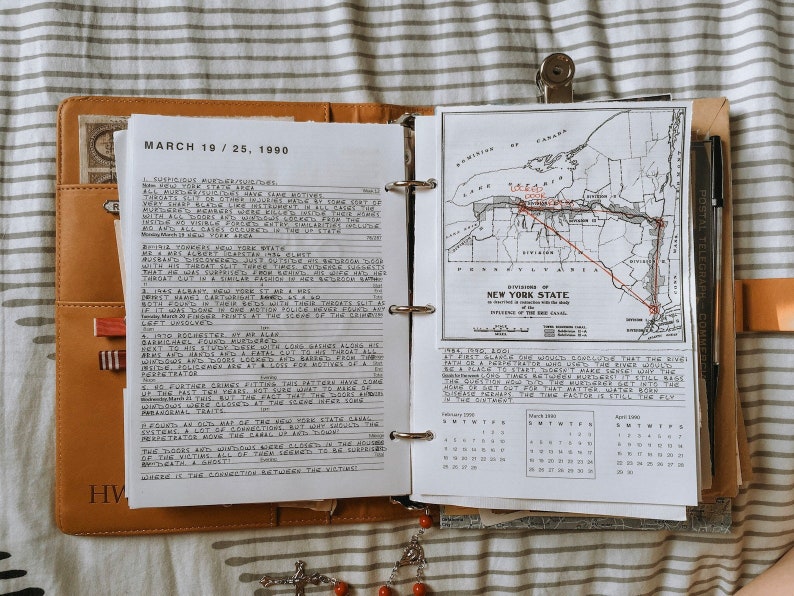 MARCH 19 / 25, 1990
1. SUSPICIOUS MURDER/SUICIDES.
Notes NEW YORK STATE AREA Week 12
ALL MURDER/SUICIDES HAVE SAME MOTIVES
THROATS SLIT OR OTHER INJURIES MADE BY SOME SORT OF
VERY SHARP BLADE LIKE INSTRUMENT. IN ALL CASES THE
MURDERED MEMBERS WERE KILLED INSIDE THEIR HOMES
WITH ALL DOORS AND WINDOWS LOCKED FROM THE
INSIDE. NO SIGN OF FORCED ENTRY. SIMILARITIES INCLUDE
MO AND ALL CASES OCCURED IN THE UP STATE
Monday, March 19 NEW YORK AREA 78/287
2. 1912 YONKERS NEW YORK STATE
MR & MRS ALBERT 1936 ELMST
HUSBAND DISCOVERED JUST OUTSIDE HIS BEDROOM DOOR
WITH HIS THROAT SLIT THREE TIMES. EVIDENCE SUGGESTS
THAT HE WAS SURPRISED FROM BEHIND. HIS WIFE HAD HER
THROAT CUT IN A SIMILAR FASHION IN HER BEDROOM BATH
3. 1945 ALBANY, NEW YORK ST MR & MRS
(FIRST NAME) CARTWRIGHT AGED 65 & 60
BOTH FOUND IN THEIR BEDS WITH THEIR THROATS SLIT AS
IF IT WAS DONE IN ONE MOTION POLICE NEVER FOUND ANY
Tuesday, March 20 FINGER PRINTS AT THE SCENE OF THE CRIME
LEFT UNSOLVED
4. 1970 ROCHESTER NY MR ALAN
CARMICHAEL FOUND MURDERED
NEXT TO HIS STUDY DESK WITH LONG GASHES ALONG HIS
ARMS AND HANDS AND A FATAL CUT TO HIS THROAT ALL
WINDOWS AND DOORS LOCKED AND BARRED FROM THE
INSIDE. POLICEMEN ARE AT A LOSS FOR MOTIVES OF A
PERPETRATOR
Noon
5. NO FURTHER CRIMES FITTING THIS PATTERN HAVE COME
UP THE PAST TEN YEARS. NOT SURE WHAT TO MAKE OF
Wednesday, March 21 THIS. BUT THE FACT THAT THE DOORS AND
WINDOWS WERE CLOSED AT THE SCENE INFER SOME
PARANORMAL TRAITS.
I FOUND AN OLD MAP OF THE NEW YORK STATE CANAL
SYSTEMS. A LOT OF CONNECTIONS. BUT WHY SHOULD THE
PERPETRATOR MOVE THE CANAL UP AND DOWN?
THE DOORS AND WINDOWS WERE CLOSED IN THE HOUSES
OF THE VICTIMS. ALL OF THEM SEEMED TO BE SURPRISED
BY DEATH. A GHOST?
Evening
WHERE IS THE CONNECTION BETWEEN THE VICTIMS?
HW
DOMINION OF CANADA
LAKE
DIVISION
PENNSYLVANIA
CONN
MASS
DIVISIONS OF
NEW YORK STATE
as described in connection with the study
of the
INFLUENCE OF THE ERIE CANAL.
1984, 1990, 2001
AT FIRST GLANCE ONE WOULD CONCLUDE THAT THE RIVER
PATH OR A PERPETRATOR WHO USES THE RIVER WOULD
BE A PLACE TO START. DOESN'T MAKE SENSE! WHY THE
LONG TIMES BETWEEN MURDERS? IT STILL BAGS
THE QUESTION HOW DID THE MURDERER GET INTO THE
HOME OR GET OUT FOR THAT MATTER. WATER BORN
DISEASE PERHAPS. THE TIME FACTOR IS STILL THE FLY
IN THE OINTMENT.
February 1990
S M T W T F S
1 2 3
4 5 6 7 8 9 10
11 12 13 14 15 16 17
18 19 20 21 22 23 24
25 26 27 28
March 1990
S M T W T F S
1 2 3
4 5 6 7 8 9 10
11 12 13 14 15 16 17
18 19 20 21 22 23 24
25 26 27 28 29 30 31
April 1990
S M T W T F S
1 2 3 4 5 6 7
8 9 10 11 12 13 14
15 16 17 18 19 20 21
22 23 24 25 26 27 28
29 30
POSTAL TELEGRAPH COMMERCIAL